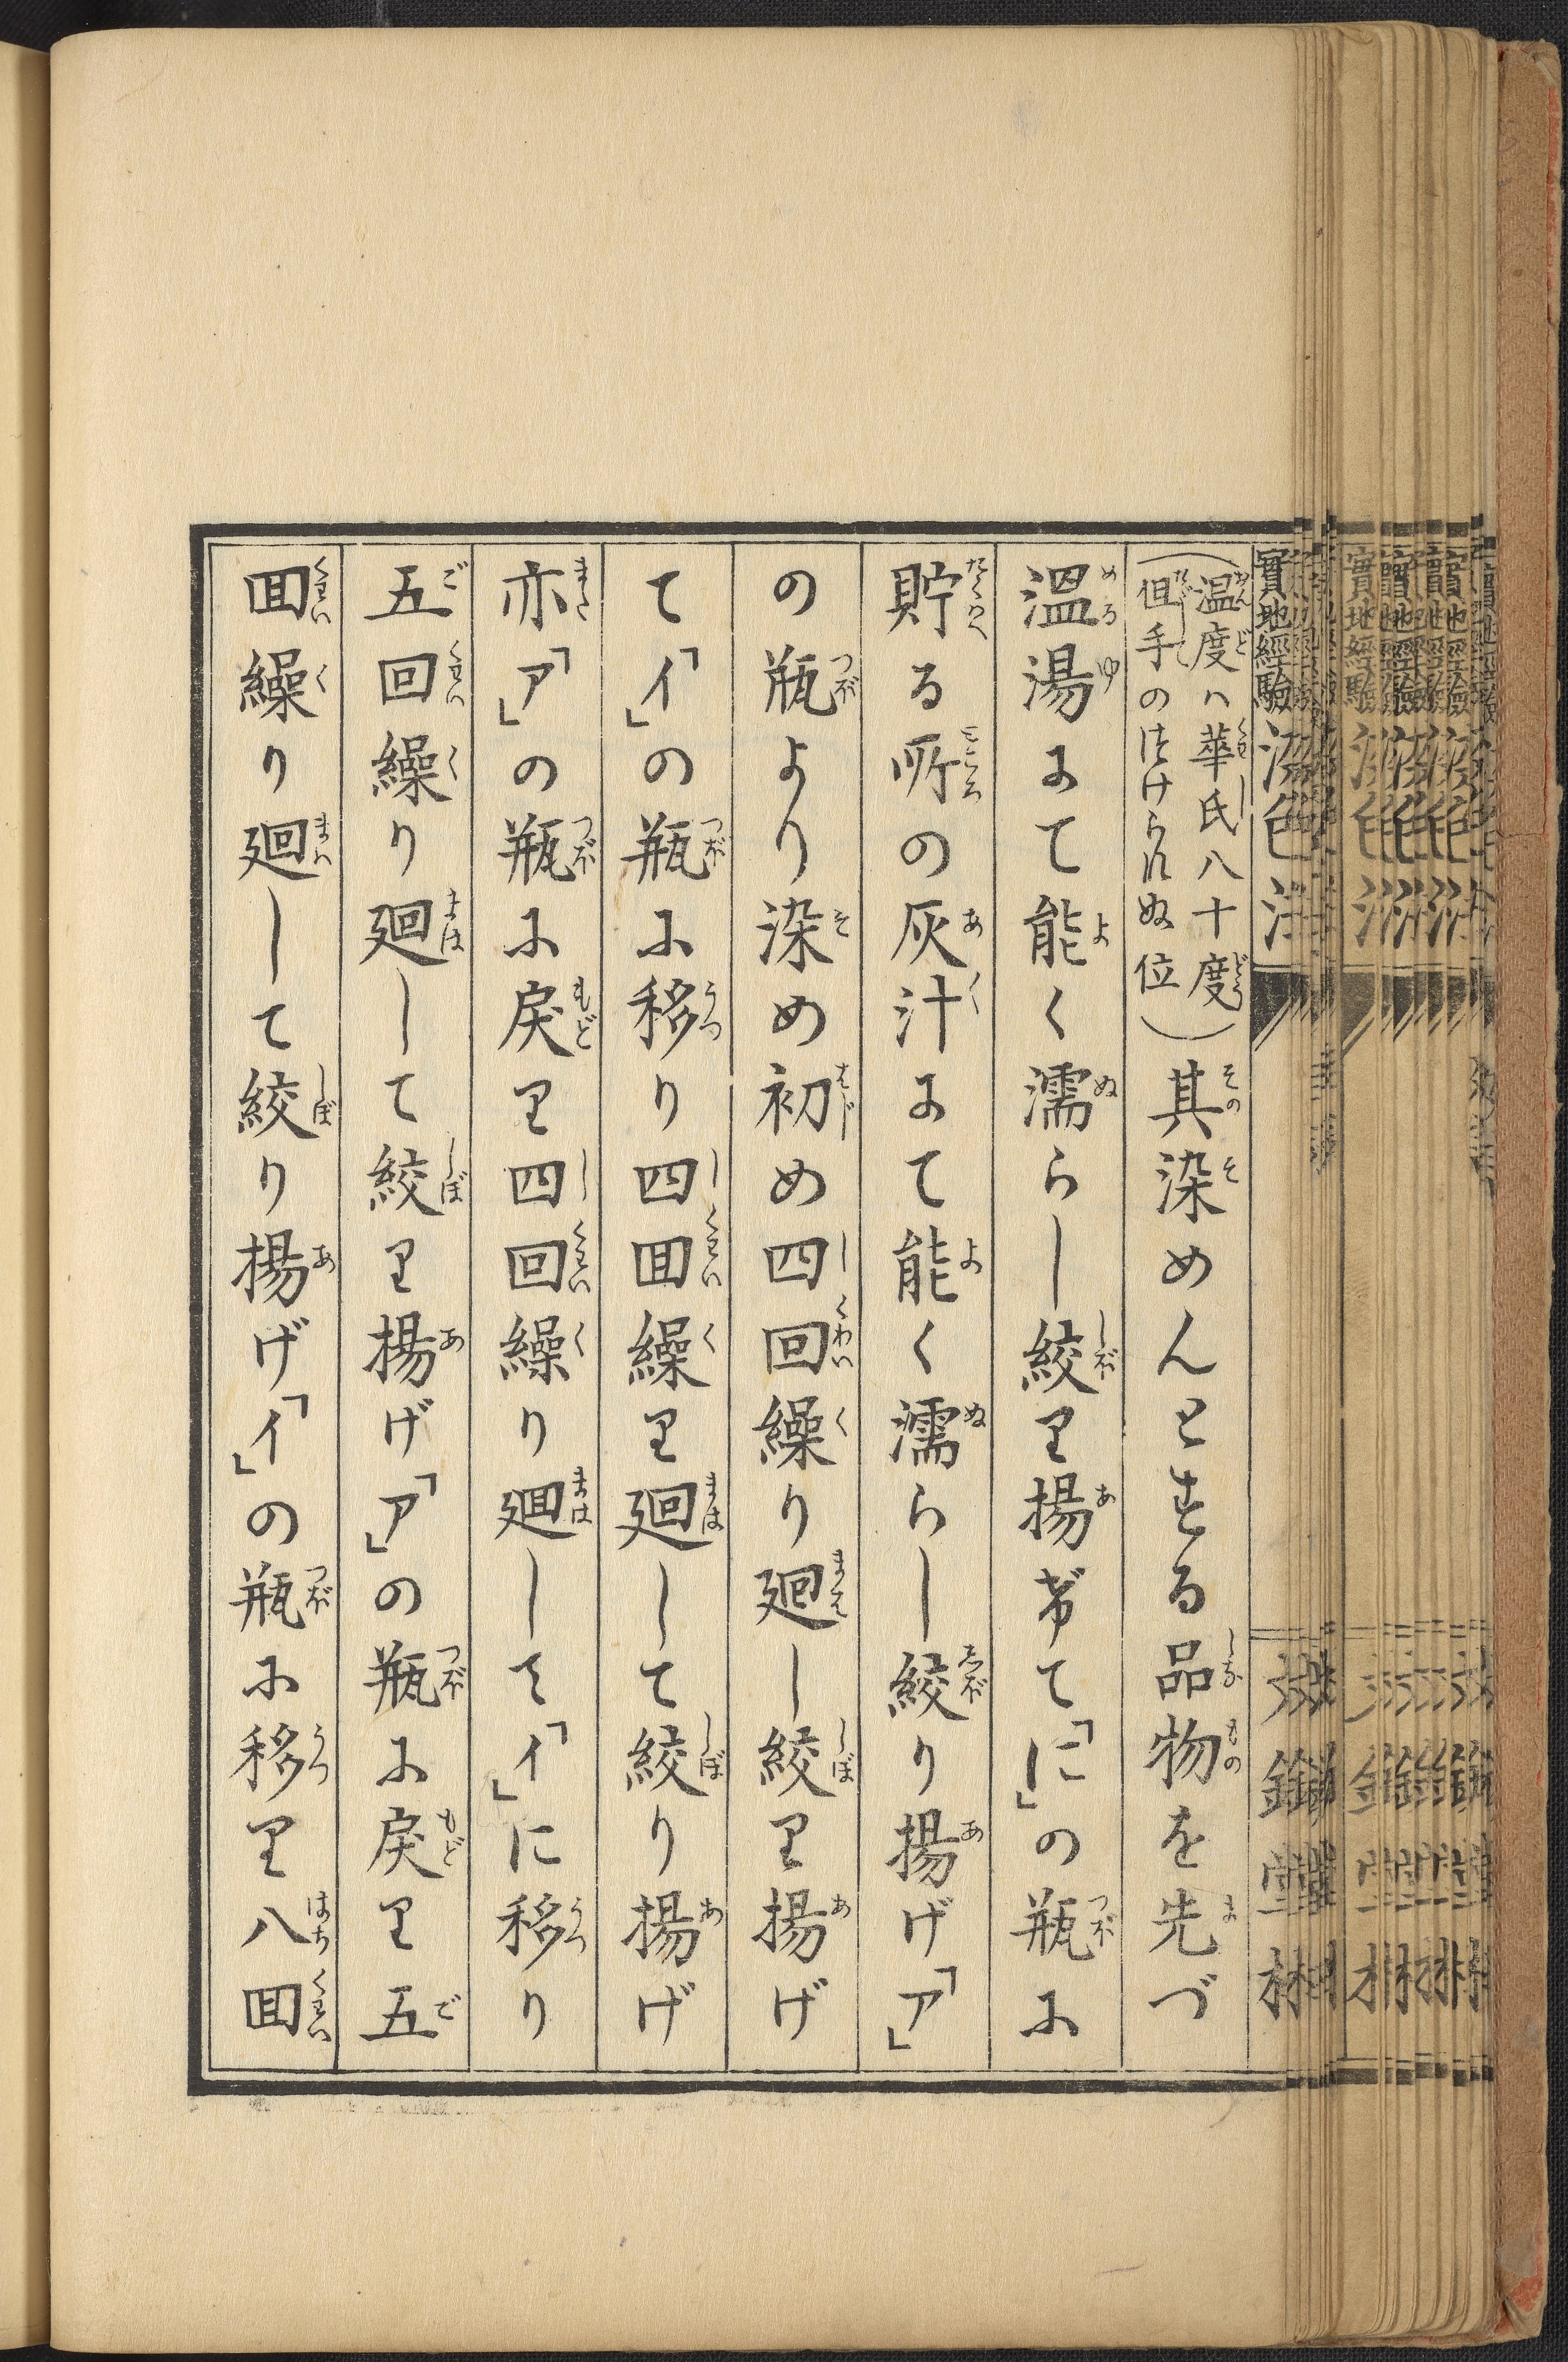 實地經驗染色法
(温度ハ華氏八十度
但手のはけられぬ位)其染めんとする品物を先づ
溫湯にて能く濡らし絞り揚げて「に」の瓶に
貯る所の灰汁にて能く濡らし絞り揚げ「ア」
の瓶より染め初め四回繰り廻し絞り揚げ
て「イ」の瓶に移り四回繰り廻して絞り揚げ
亦「ア」の瓶に戻り四回繰り廻して「イ」に移り
五回繰り廻して絞り揚げ「ア」の瓶に戻り五
回繰り廻して絞り揚げ「イ」の瓶に移り八回